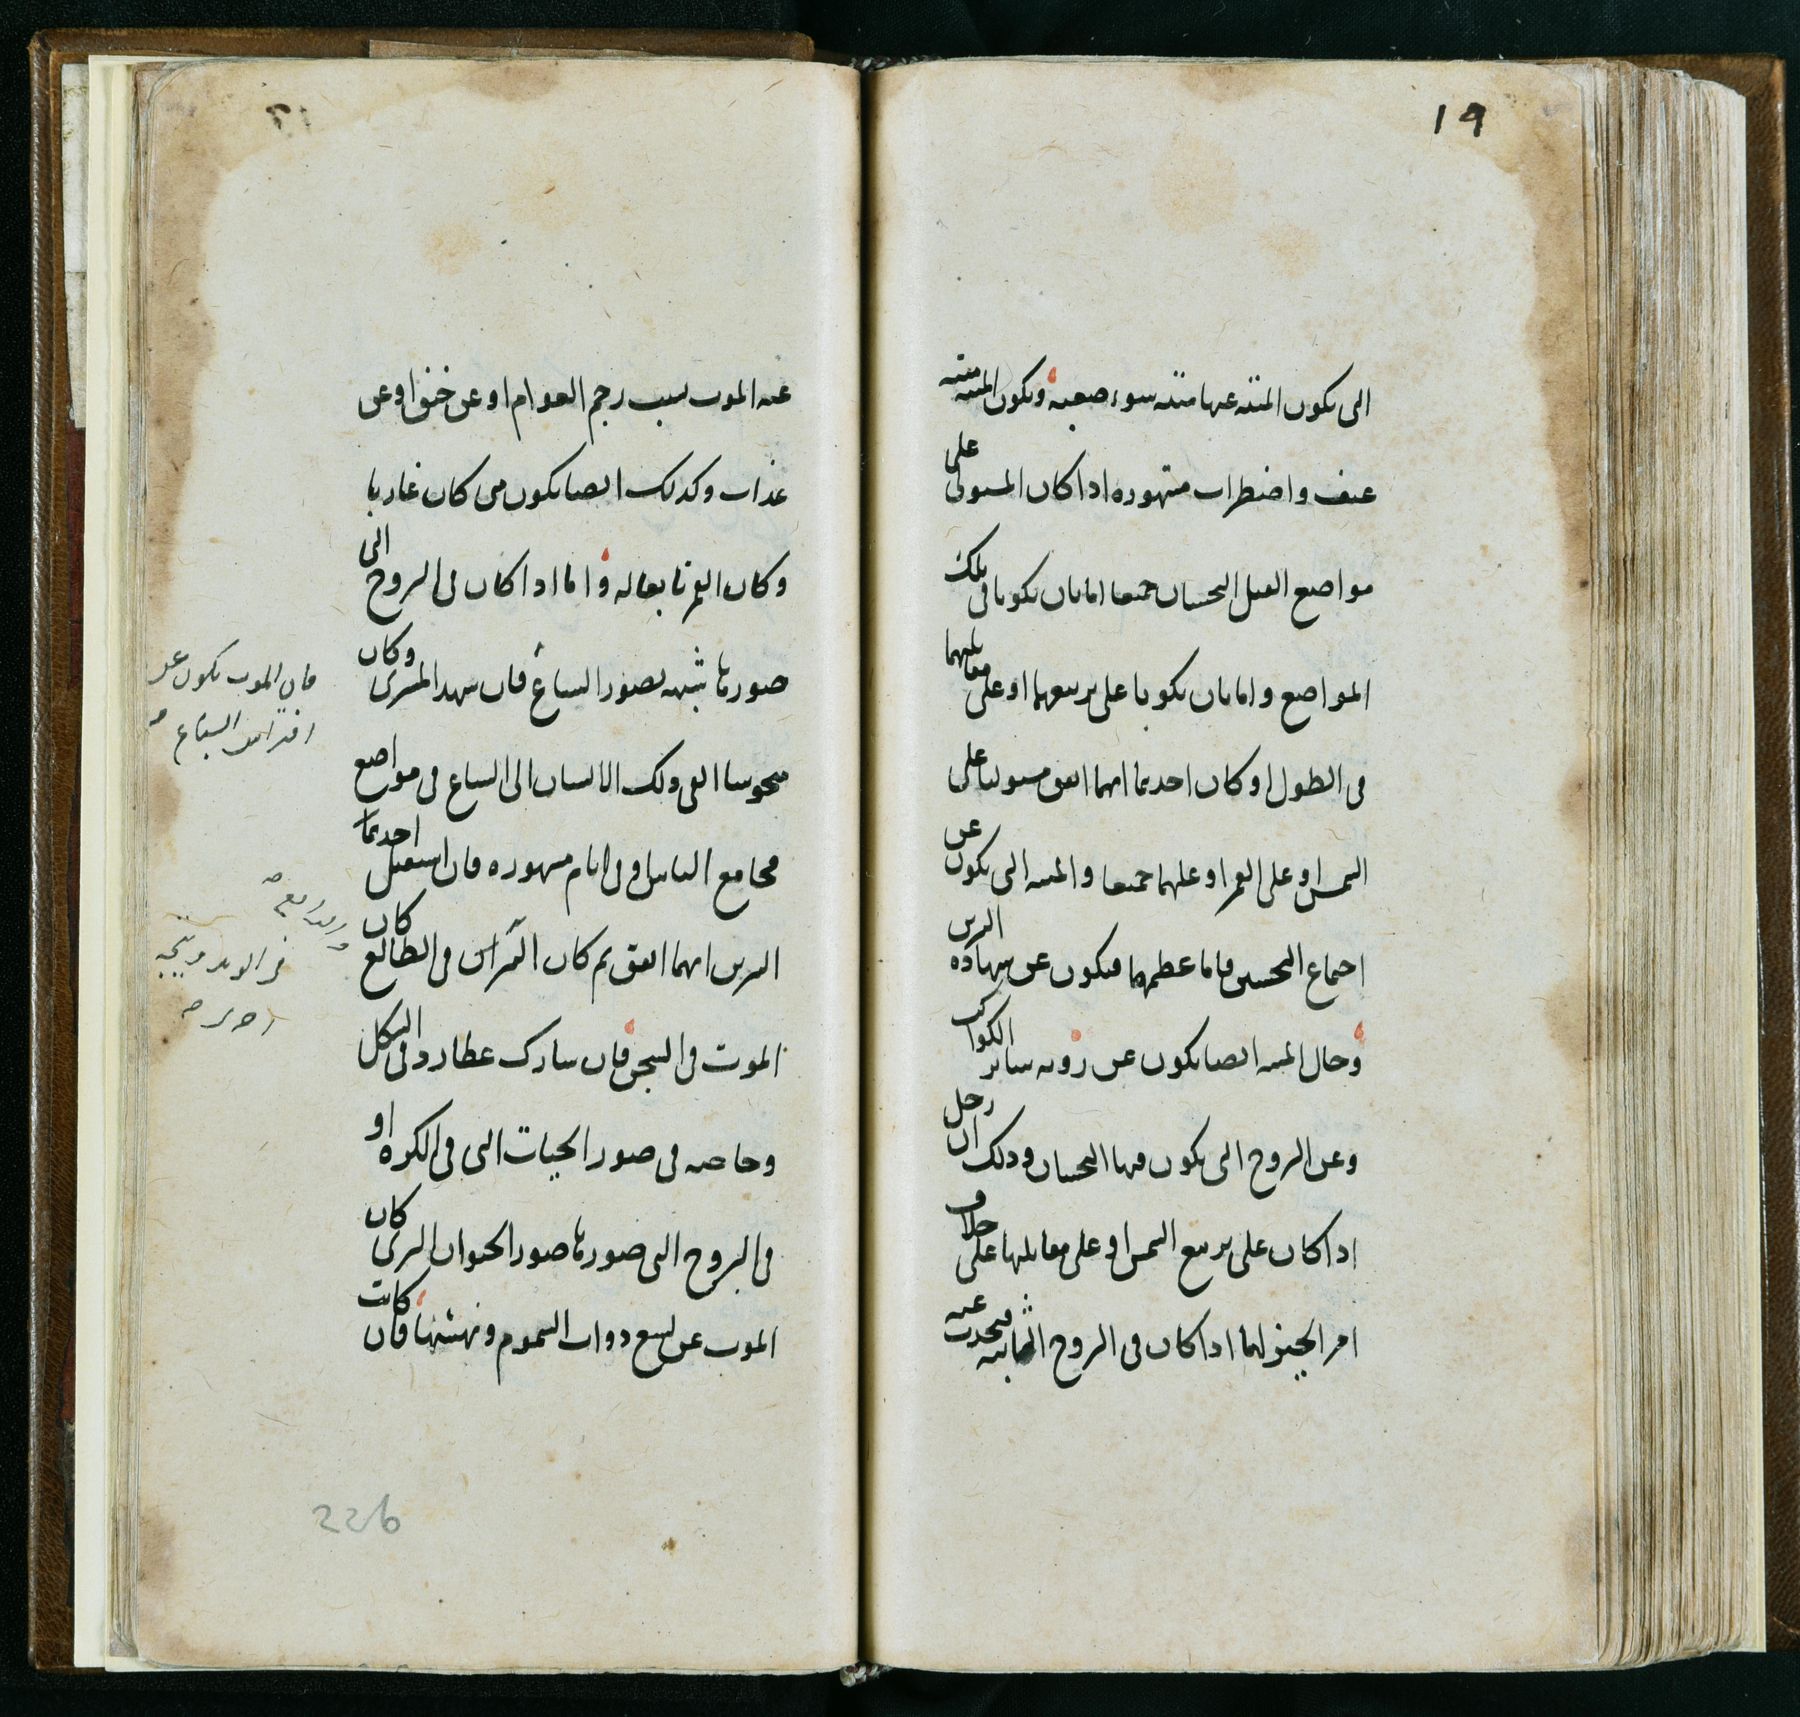 19
الى يكون الميتة عنها ميتة سوء صعبة ويكون الميتة ميتة
عنف واضطراب مشهورة اذا كان المستولى على
مواضع القتل النحسان جميعا اما بان يكونا فى تلك
المواضع واما بان يكونا على تربيعهما او على مقابلتهما
فى الطول او كان احدهما ايهما اتفق مستوليا على
الشمس او على القمر او عليهما جميعا والميتة التى يكون عن
اجتماع النحسين فاما عظمهما فيكون عن شهادة النيرين
وحال الميتة ايضا يكون عن رؤية سائر الكواكب
وعن البروج التى يكون فيها النحسان وذلك ان زحل
اذا كان على تربيع الشمس او على مقابلتها على خلاف
امر الحيز لهما اذا كان فى البروج الثابتة فيحدث عنه
عنه الموت بسبب رجم العوام او عن خنق او عن
عذاب وكذلك ايضا يكون متى كان غاربا
وكان القمر تابعا له واما اذا كان فى البروج التى
صورها شبيه بصور السباع فان شهد المشترى وكان
منحوسا القى ذلك الانسان الى السباع فى مواضع
مجامع الناس او فى ايام مشهورة فان استقبل احدهما
النيرين ايهما اتفق ثم كان النيران فى الطالع كان
الموت فى السجن فان شارك عطارد فى الشكل
وخاصة فى صور الحيات التى فى الكرة او
فى البروج التى صورها صور الحيوان البرى كان
الموت عن لسع دواب السموم ونهشها فان كانت
فان الموت يكون عن
افتراس السباع صح
226